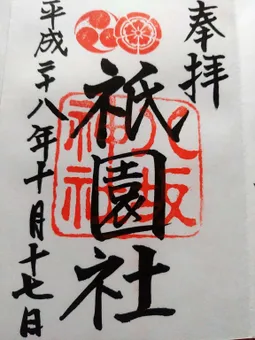 奉拝
祇園社
八坂
神社
平成二十八年十月十七日